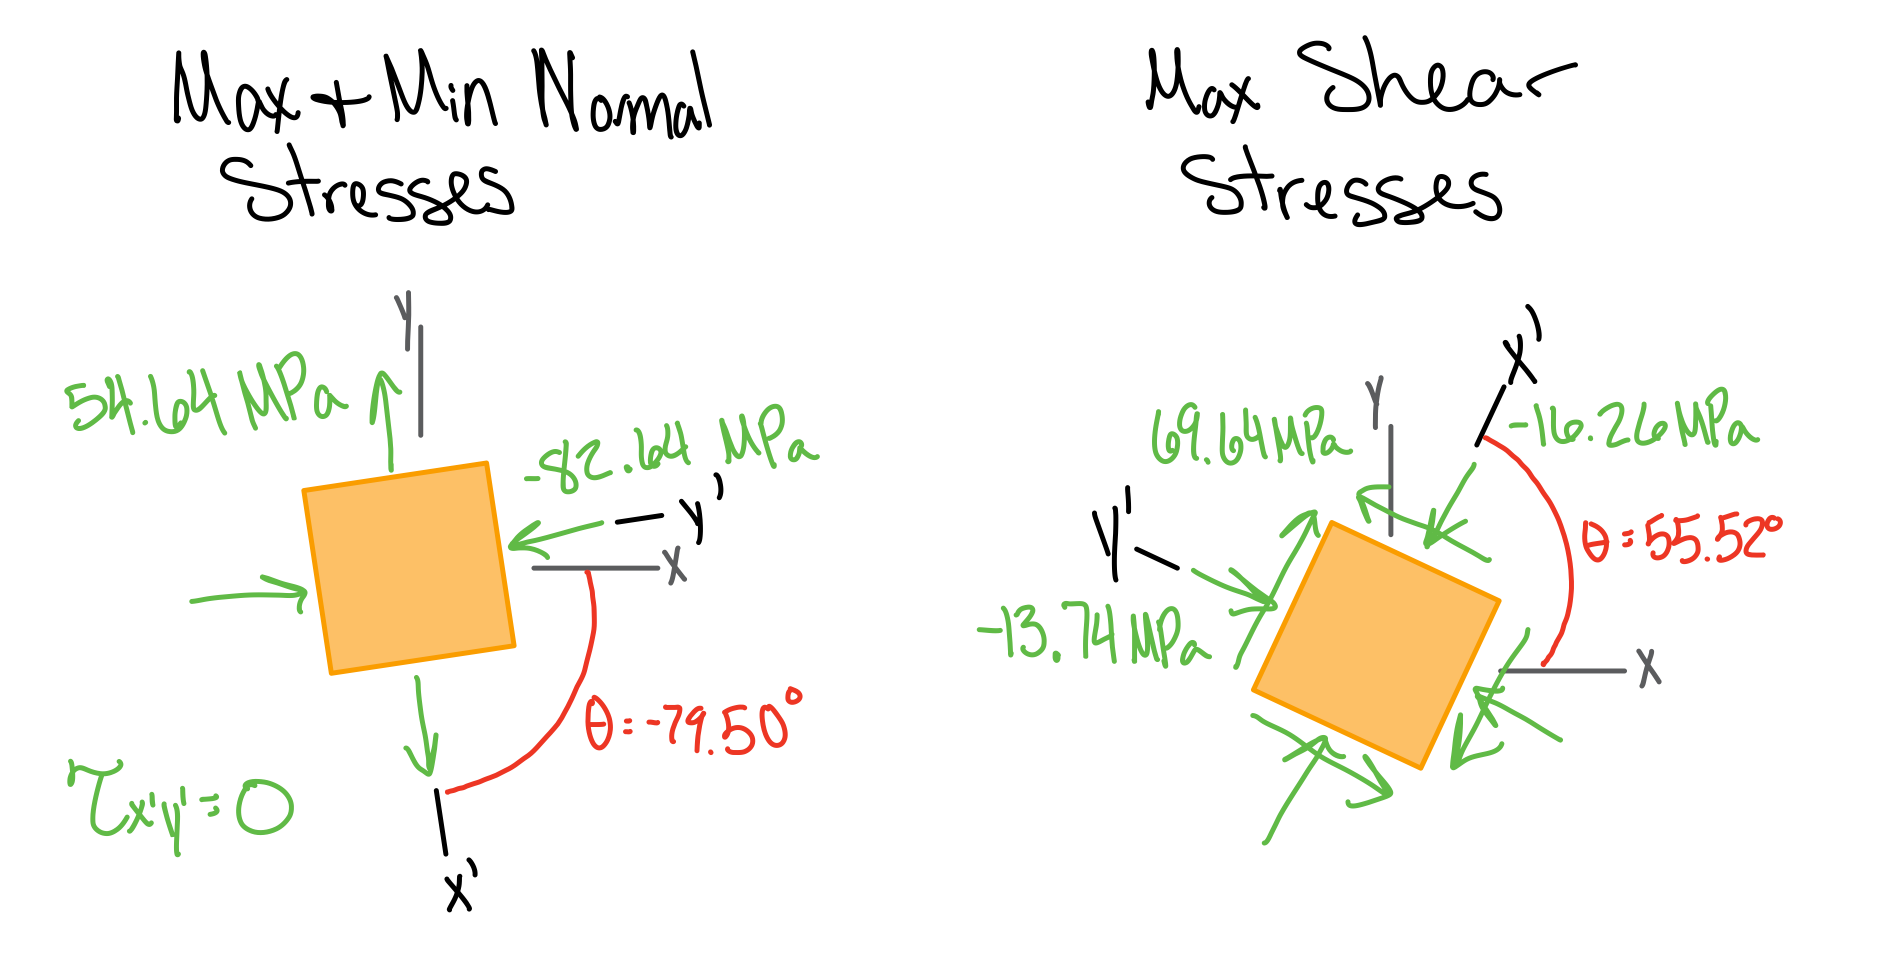 Max + Min Normal
Stresses
Y
54.64 MPa
-82.64 MPa
Y'
X
θ = -79.50°
τx'y' = 0
X'
Max Shear
Stresses
X'
Y
69.64 MPa
-16.26 MPa
Y'
θ = 55.52°
-13.74 MPa
X